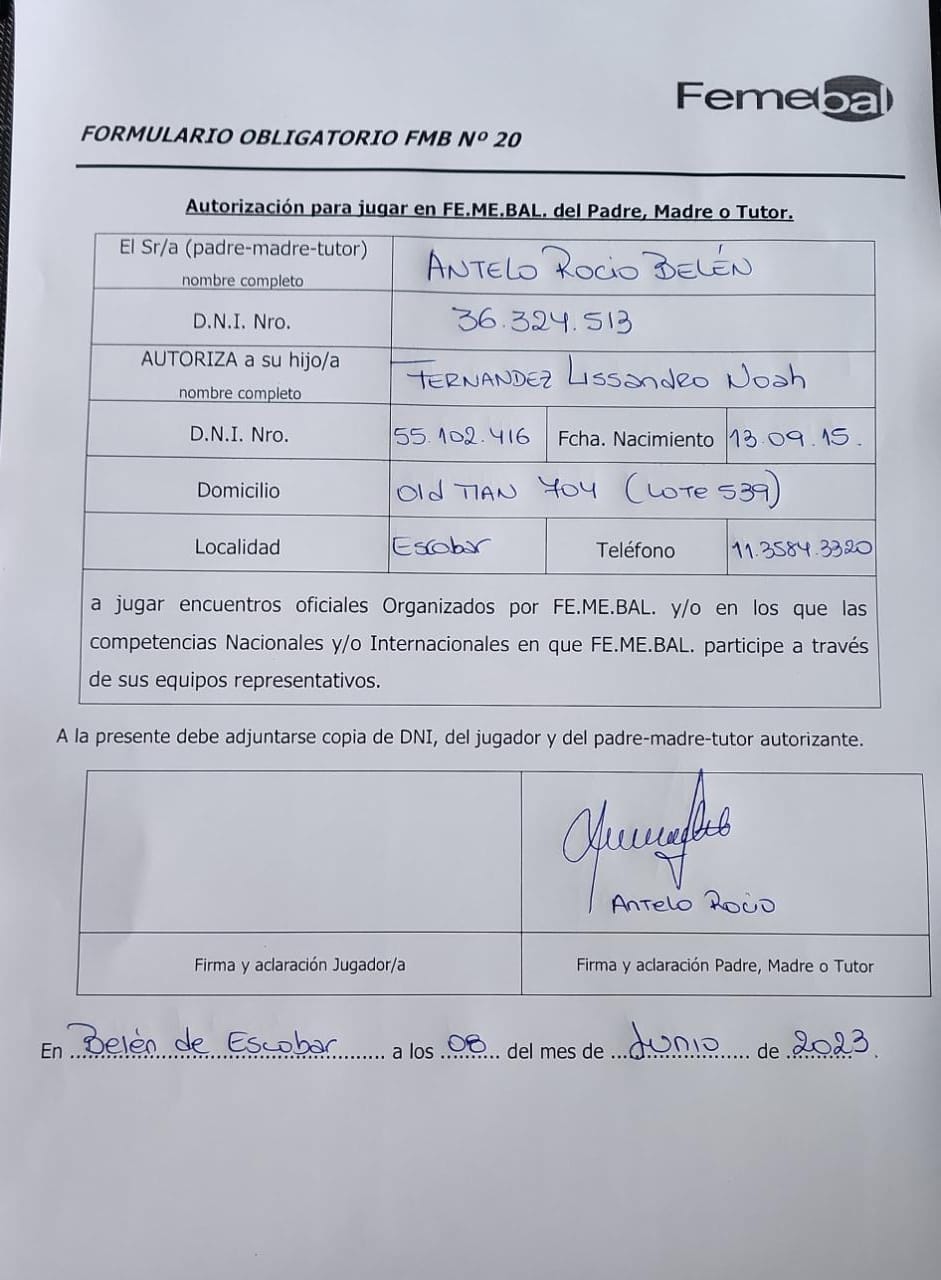 Femebal
FORMULARIO OBLIGATORIO FMB Nº 20
Autorización para jugar en FE.ME.BAL. del Padre, Madre o Tutor.
El Sr/a (padre-madre-tutor) nombre completo ANTELO ROCIO BELÉN
D.N.I. Nro. 36.324.513
AUTORIZA a su hijo/a nombre completo FERNANDEZ LISSANDRO NOAH
D.N.I. Nro. 55.102.416 Fcha. Nacimiento 13.09.15.
Domicilio Old MAN 704 (LOTE 539)
Localidad Escobar Teléfono 11.3584.3320
a jugar encuentros oficiales Organizados por FE.ME.BAL. y/o en los que las
competencias Nacionales y/o Internacionales en que FE.ME.BAL. participe a través
de sus equipos representativos.
A la presente debe adjuntarse copia de DNI, del jugador y del padre-madre-tutor autorizante.
ANTELO ROCIO
Firma y aclaración Jugador/a Firma y aclaración Padre, Madre o Tutor
En Belén de Escobar a los 08 del mes de Junio de 2023.